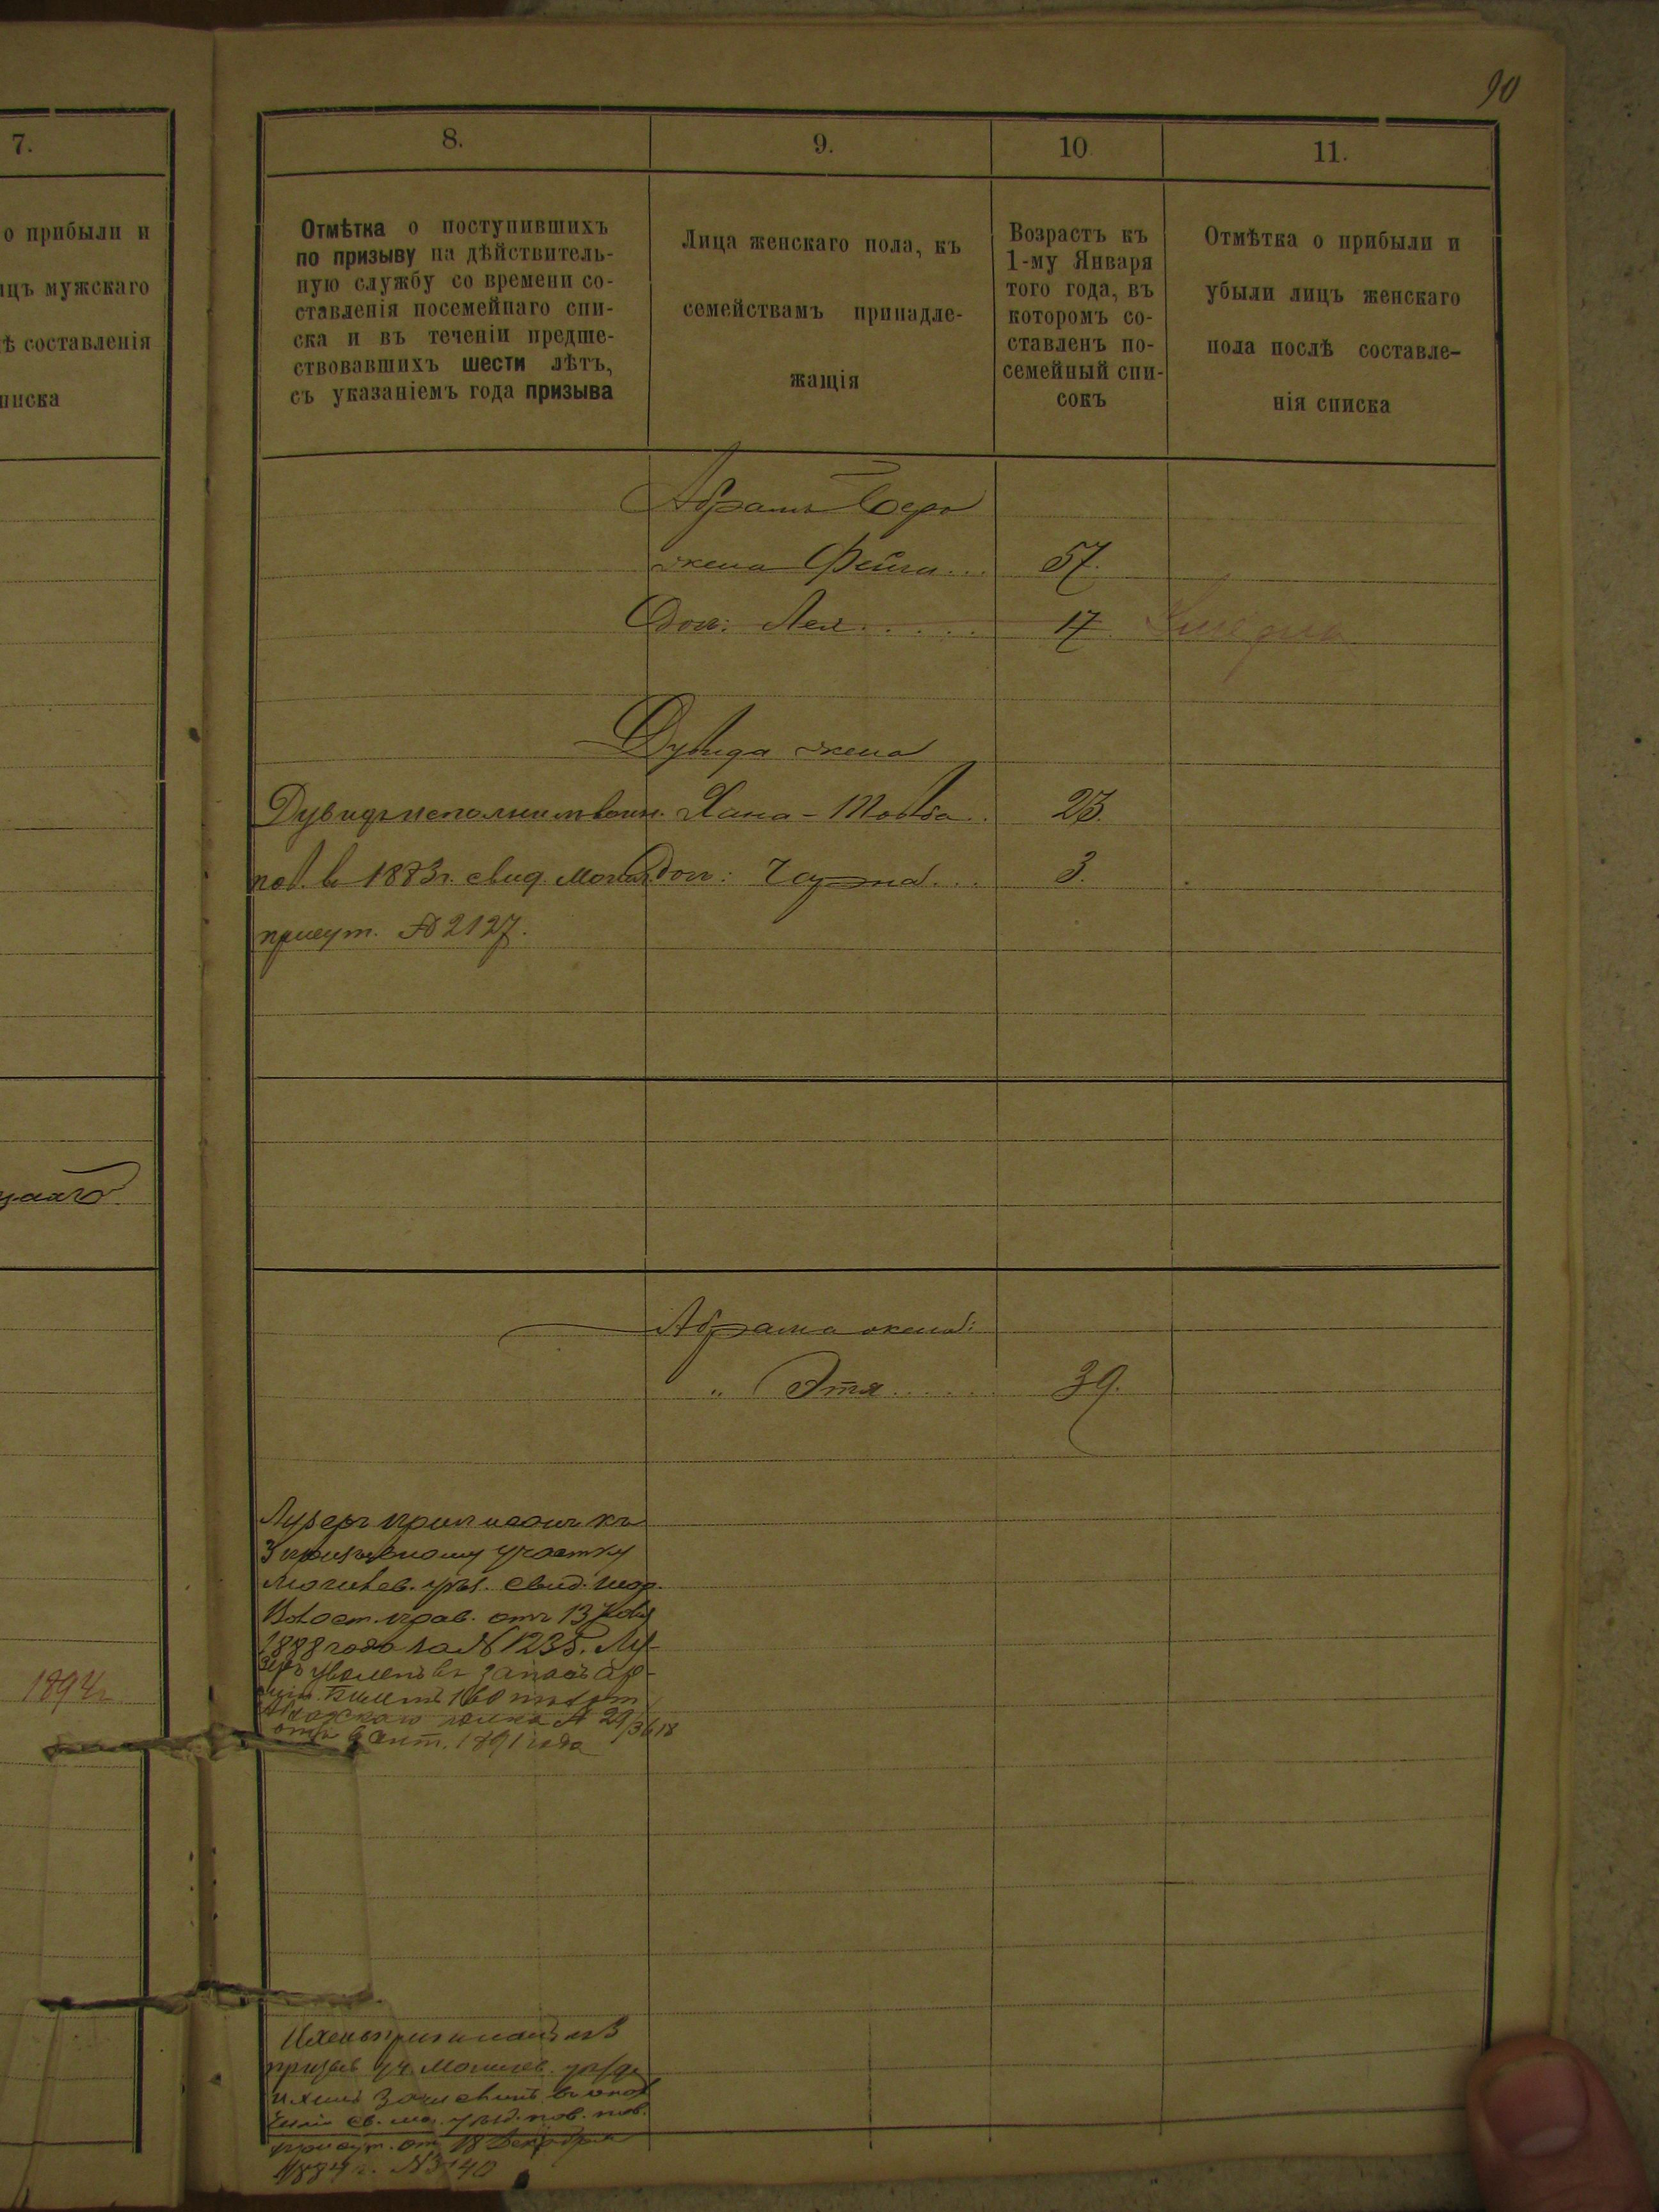 90
7.
8.
9.
10
11.
о прибыли и
ицъ мужскаго
ѣ составленія
писка
Отмѣтка о поступившихъ
по призыву на дѣйствитель-
ную службу со времени со-
ставленія посемейнаго спи-
ска и въ теченіи предше-
ствовавшихъ шести лѣтъ,
съ указаніемъ года призыва
Лица женскаго пола, къ
семействамъ принадле-
жащія
Возрастъ къ
1-му Января
того года, въ
которомъ со-
ставленъ по-
семейный спи-
сокъ
Отмѣтка о прибыли и
убыли лицъ женскаго
пола послѣ составле-
нія списка
Абрамъ Беръ
жена Фейга... 57.
Доч: Лея..... 17
Дувида жена
Дувидъ исполни воин. Хана-Товба.. 23.
пов. въ 1883г. свид. Могил. доч: Чарна... 3.
присут. № 2127.
Абрама жена:
" Этя...... 39.
Лузеръ приписанъ къ
3 призывному участку
Могилев. уѣз. свид. Шар.
Волост. прав. отъ
1888 года за № 1235. Лу-
зеръ уволенъ въ запасъ ар-
міи. Билетъ
полка № 29/3618
1891 года
1894г
приписанъ къ 3
призыв уч. Могилев. уѣзда
зачисленъ въ опол
ченіе св. мог. уѣзд. пов.
присут. отъ 18 Декабря
№ 3140